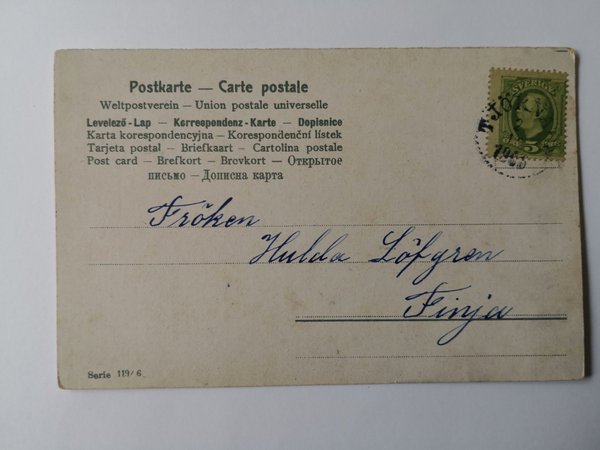 Postkarte — Carte postale
Weltpostverein — Union postale universelle
Levelező-Lap — Korrespondenz-Karte — Dopisnice
Karta korespondencyjna — Korespondenční lístek
Tarjeta postal — Briefkaart — Cartolina postale
Post card — Brefkort — Brevkort — Открытое
письмо — Дописна карта
SVERIGE
5
1903
Fröken
Hulda Löfgren
Finja
Serie 119/6